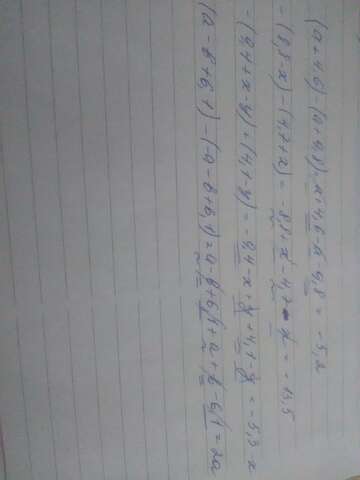 (a+4,6)-(a+9,8)=a+4,6-a-9,8=-5,2
-(8,8-x)-(4,7+x)=-8,8+x-4,7-x=-13,5
-(9,4+x-y)+(4,1-y)=-9,4-x+y+4,1-y=-5,3-x
(a-b+6,1)-(-a-b+6,1)=a-b+6,1+a+b-6,1=2a